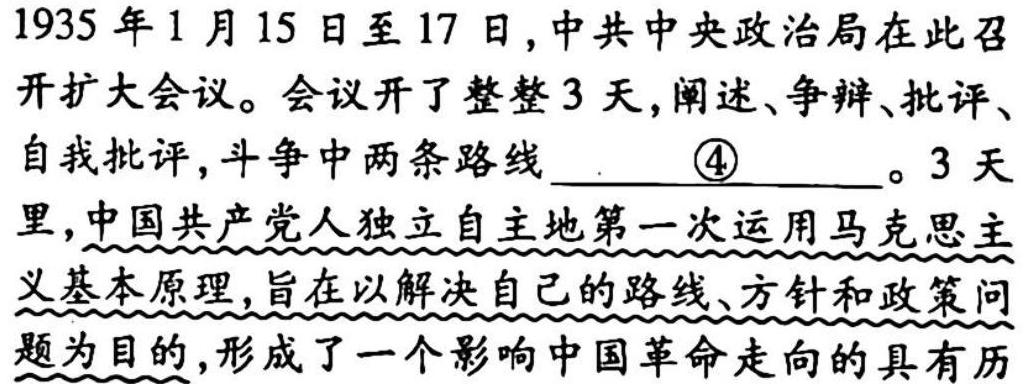 1935年1月15日至17日,中共中央政治局在此召
开扩大会议。会议开了整整3天,阐述、争辩、批评、
自我批评,斗争中两条路线____④____。3天
里,中国共产党人独立自主地第一次运用马克思主
义基本原理,旨在以解决自己的路线、方针和政策问
题为目的,形成了一个影响中国革命走向的具有历